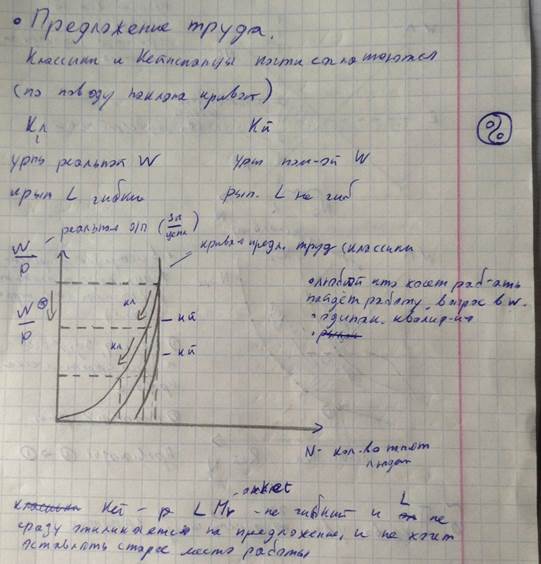 • Предложение труда.
Классики и Кейнсианцы почти соглашаются
(по поводу наклона кривой)
Кл Кй
урвь реальной W урвь ном-ой W
рын L гибкий рын. L не гиб
W/P реальная з/п (зп/цены)
кривая предл. труд (классики
• любой кто хочет раб-ать
найдёт работу, вопрос в W.
• одинак. квалиф-ия
W/P
кл
кл
– кй
– кй
N - кол-во
людей
Кей – L Mr -не гибкий и L не
сразу откликается на предложение, и не хочет
оставлять старое место работы